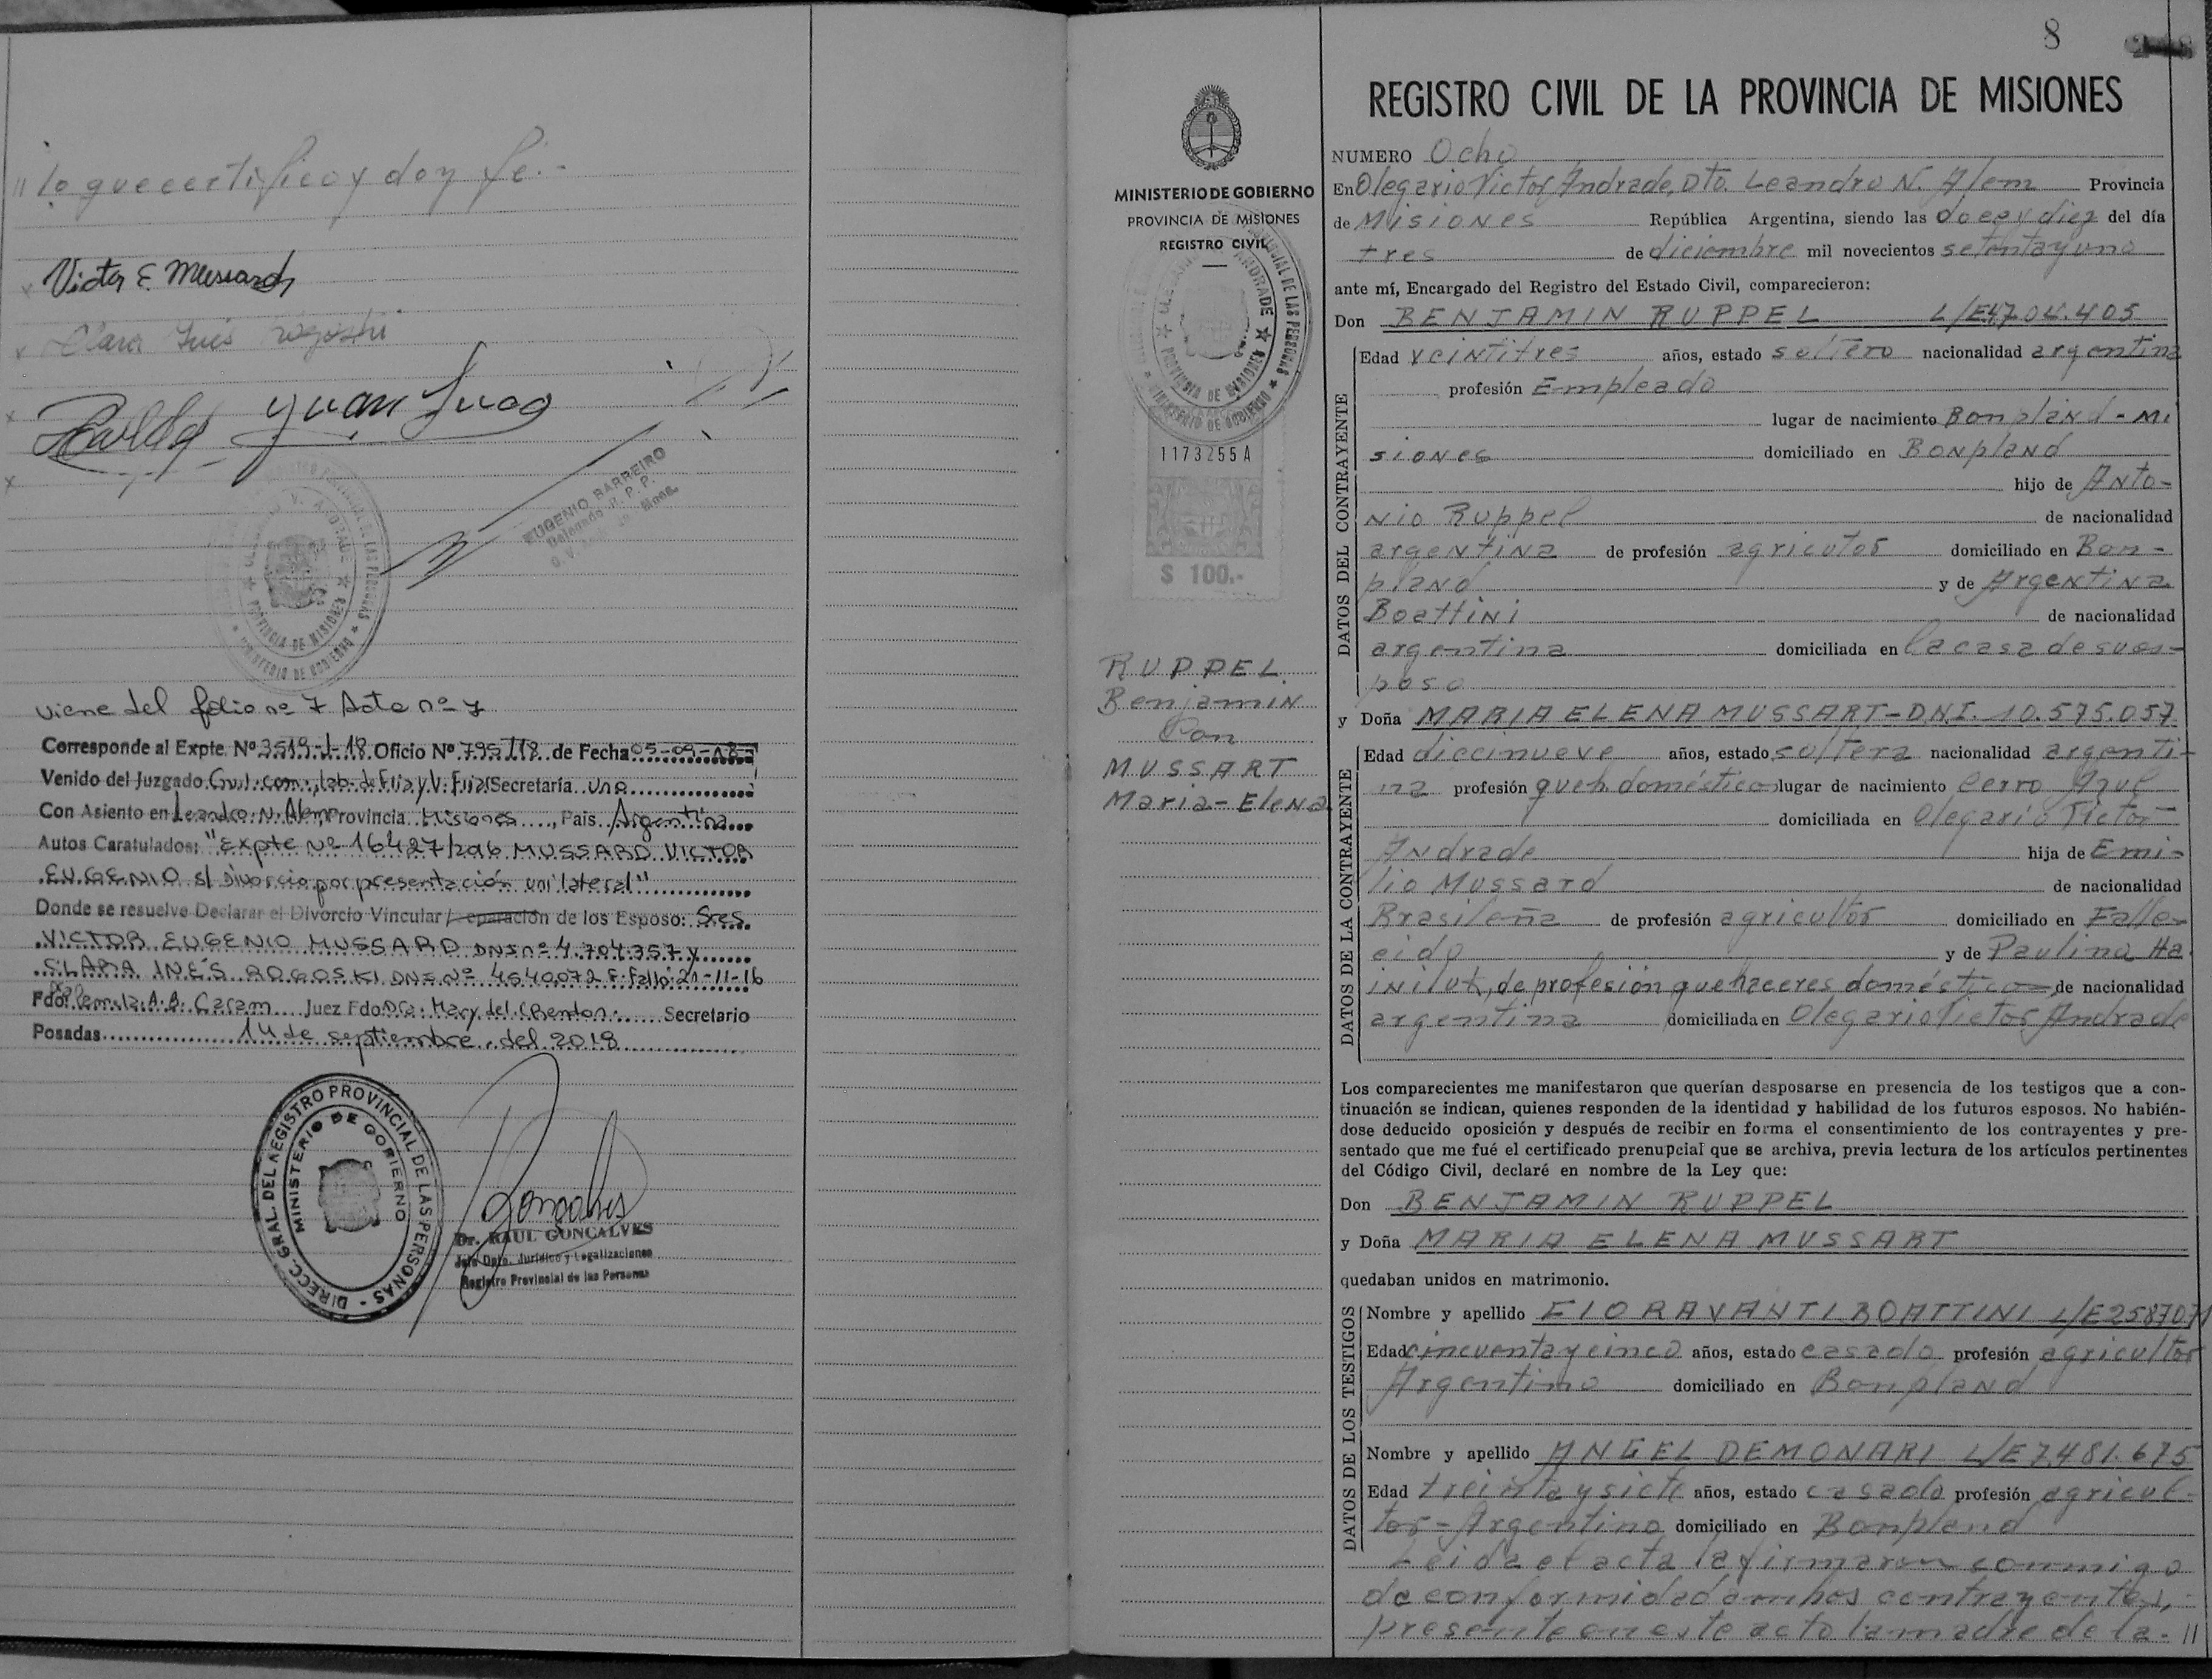 // lo que certifico y doy fé.-
Victor E. Mussard
Clara Inés Rogoski
EUGENIO BARREIRO
Delegado R. P. P.
viene del folio nº 7 Acta nº 7
Corresponde al Expte. Nº 3519-J-18 Oficio Nº 795/18 de Fecha 05-09-18
Venido del Juzgado Civil. com., Lab. de Flia y V. Flia Secretaría Una
Con Asiento en Leandro. N. Alem, Provincia Misiones, País Argentina
Autos Caratulados: "Expte Nº 16427/2016 MUSSARD VICTOR
EUGENIO s/ Divorcio por presentación unilateral"
Donde se resuelve Declarar el Divorcio Vincular/Separación de los Esposo: Sres.
VICTOR EUGENIO MUSSARD DNI nº 4.704.357 y
CLARA INÉS ROGOSKI DNI Nº 4640.072 F. Fallo: 21-11-16
Fdo: A.B. Caram Juez Fdo Dra. Mary del C Benton Secretario
Posadas 14 de septiembre del 2018
DIRECC. GRAL. DEL REGISTRO PROVINCIAL DE LAS PERSONAS
MINISTERIO DE GOBIERNO
Dr. RAUL GONÇALVES
Jefe Dpto. Jurídico y Legalizaciones
Registro Provincial de las Personas
8
MINISTERIO DE GOBIERNO
PROVINCIA DE MISIONES
REGISTRO CIVIL
1173255A
$ 100.-
RUPPEL
Benjamin
Con
MUSSART
Maria-Elena
REGISTRO CIVIL DE LA PROVINCIA DE MISIONES
NUMERO Ocho
En Olegario Victor Andrade, Dto. Leandro N. Alem Provincia
de Misiones República Argentina, siendo las doce y diez del día
tres de diciembre mil novecientos setenta y uno
ante mí, Encargado del Registro del Estado Civil, comparecieron:
Don BENJAMIN RUPPEL L/E 4.704.405
DATOS DEL CONTRAYENTE
Edad veintitres años, estado soltero nacionalidad argentina
profesión Empleado
lugar de nacimiento Bonpland - Mi
siones domiciliado en Bonpland
hijo de Anto-
nio Ruppel de nacionalidad
argentina de profesión agricutor domiciliado en Bon-
pland y de Argentina
Boattini de nacionalidad
argentina domiciliada en la casa de su es-
poso
y Doña MARIA ELENA MUSSART - DNI. 10.575.057
DATOS DE LA CONTRAYENTE
Edad diecinueve años, estado soltera nacionalidad argenti-
na profesión queh doméstico lugar de nacimiento Cerro Azul
domiciliada en Olegario Victor
Andrade hija de Emi-
lio Mussard de nacionalidad
Brasileña de profesión agricultor domiciliado en Falle-
cido y de Paulina
de profesión quehaceres domésticos, de nacionalidad
argentina domiciliada en Olegario Victor Andrade
Los comparecientes me manifestaron que querían desposarse en presencia de los testigos que a con-
tinuación se indican, quienes responden de la identidad y habilidad de los futuros esposos. No habién-
dose deducido oposición y después de recibir en forma el consentimiento de los contrayentes y pre-
sentado que me fué el certificado prenupcial que se archiva, previa lectura de los artículos pertinentes
del Código Civil, declaré en nombre de la Ley que:
Don BENJAMIN RUPPEL
y Doña MARIA ELENA MUSSART
quedaban unidos en matrimonio.
DATOS DE LOS TESTIGOS
Nombre y apellido FIORAVANTI BOATTINI L/E 2587071
Edad cincuenta y cinco años, estado casado profesión agricultor
Argentino domiciliado en Bonpland
Nombre y apellido ANGEL DEMONARI L/E 7.481.675
Edad treinta y siete años, estado casado profesión agricul-
tor - Argentino domiciliado en Bonpland
Leida el acta la firmaron conmigo
de conformidad ambos contrayentes,
presente en este acto la madre de la- //